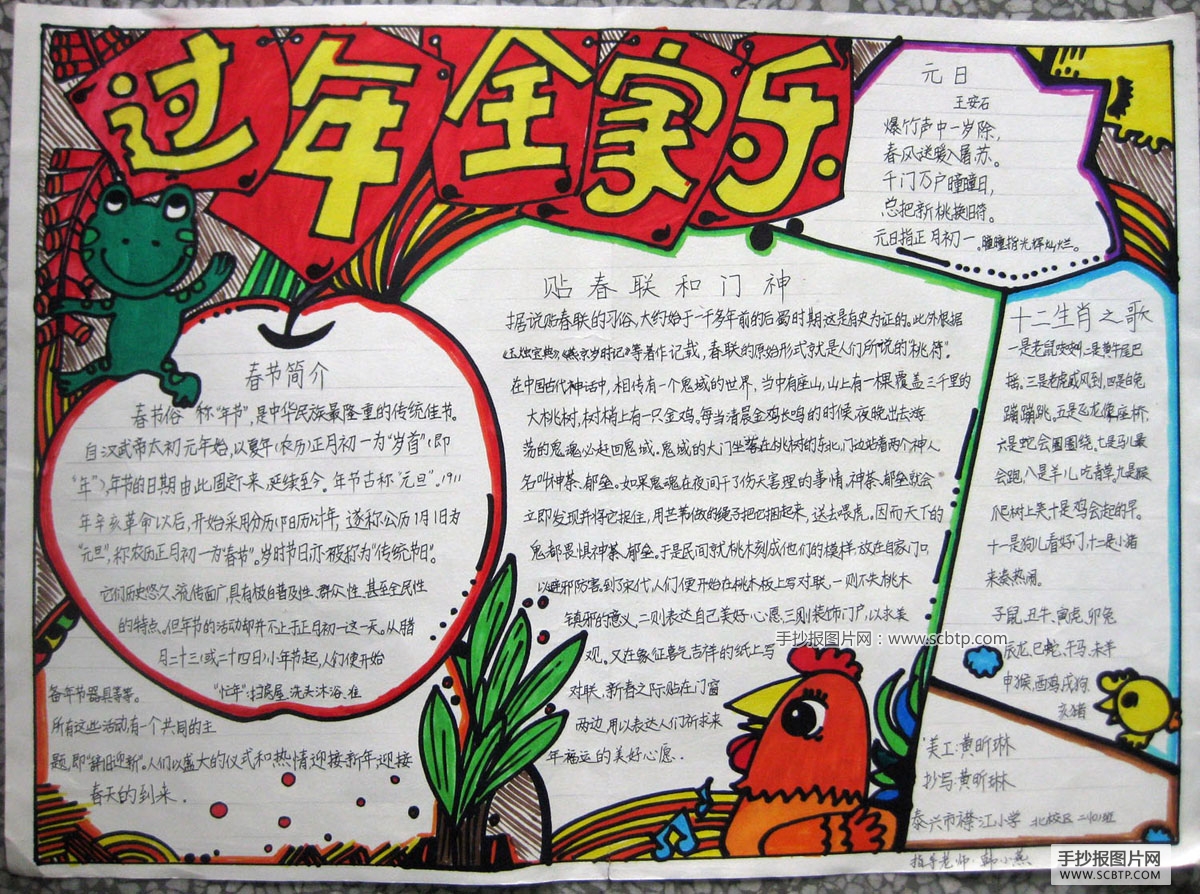 过年全家乐
元日
王安石
爆竹声中一岁除，
春风送暖入屠苏。
千门万户瞳瞳日，
总把新桃换旧符。
元日指正月初一。瞳瞳指光辉灿烂。
春节简介
春节俗称"年节"，是中华民族最隆重的传统佳节。
自汉武帝太初元年始，以夏年（农历）正月初一为"岁首"（即
"年"），年节的日期由此固定下来，延续至今。年节古称"元旦"。1911
年辛亥革命以后，开始采用公历（阳历）计年，遂称公历1月1日为
"元旦"，称农历正月初一为"春节"。岁时节日亦被称为"传统节日"。
它们历史悠久、流传面广，具有极自普及性、群众性、甚至全民性
的特点。但年节的活动却并不止于正月初一这一天。从腊
月二十三（或二十四日）小年节起，人们便开始
"忙年"：扫房屋、洗头沐浴、准
备年节器具等等。
所有这些活动，有一个共同的主
题，即"辞旧迎新"。人们以盛大的仪式和热情迎接新年，迎接
春天的到来．
贴春联和门神
据说贴春联的习俗，大约始于一千多年前的后蜀时期，这是有史为证的。此外根据
《玉烛宝典》《燕京岁时记》等著作记载，春联的原始形式就是人们所说的"桃符"。
在中国古代神话中，相传有一个鬼域的世界，当中有座山，山上有一棵覆盖三千里的
大桃树，树梢上有一只金鸡。每当清晨金鸡长鸣的时候，夜晚出去游
荡的鬼魂必赶回鬼域。鬼域的大门坐落在桃树的东北，门边站着两个神人
名叫神荼、郁垒。如果鬼魂在夜间干了伤天害理的事情，神荼、郁垒就会
立即发现并将它捉住，用芒苇做的绳子把它捆起来，送去喂虎。因而天下的
鬼都畏惧神荼、郁垒。于是民间就桃木刻成他们的模样，放在自家门口
以避邪防害。到了宋代，人们便开始在桃木板上写对联，一则不失桃木
镇邪的意义，二则表达自己美好心愿，三则装饰门户，以求美
观。又在象征喜气吉祥的纸上写
对联，新春之际贴在门窗
两边，用以表达人们祈求来
年福运的美好心愿．
十二生肖之歌
一是老鼠吱吱，二是黄牛尾巴
摇。三是老虎威风到，四是白兔
蹦蹦跳。五是飞龙像座桥，
六是蛇会圈圈绕。七是马儿最
会跑，八是羊儿吃青草。九是猴
爬树上笑，十是鸡会起的早。
十一是狗儿看好门，十二是小猪
来凑热闹。
子鼠、丑牛、寅虎、卯兔
辰龙、巳蛇、午马、未羊
申猴、酉鸡、戌狗、
亥猪
美工：黄昕琳
抄写：黄昕琳
泰兴市襟江小学 北校区
指导老师：韩小燕
手抄报图片网：www.scbtp.com
手抄报图片网
WWW.SCBTP.COM